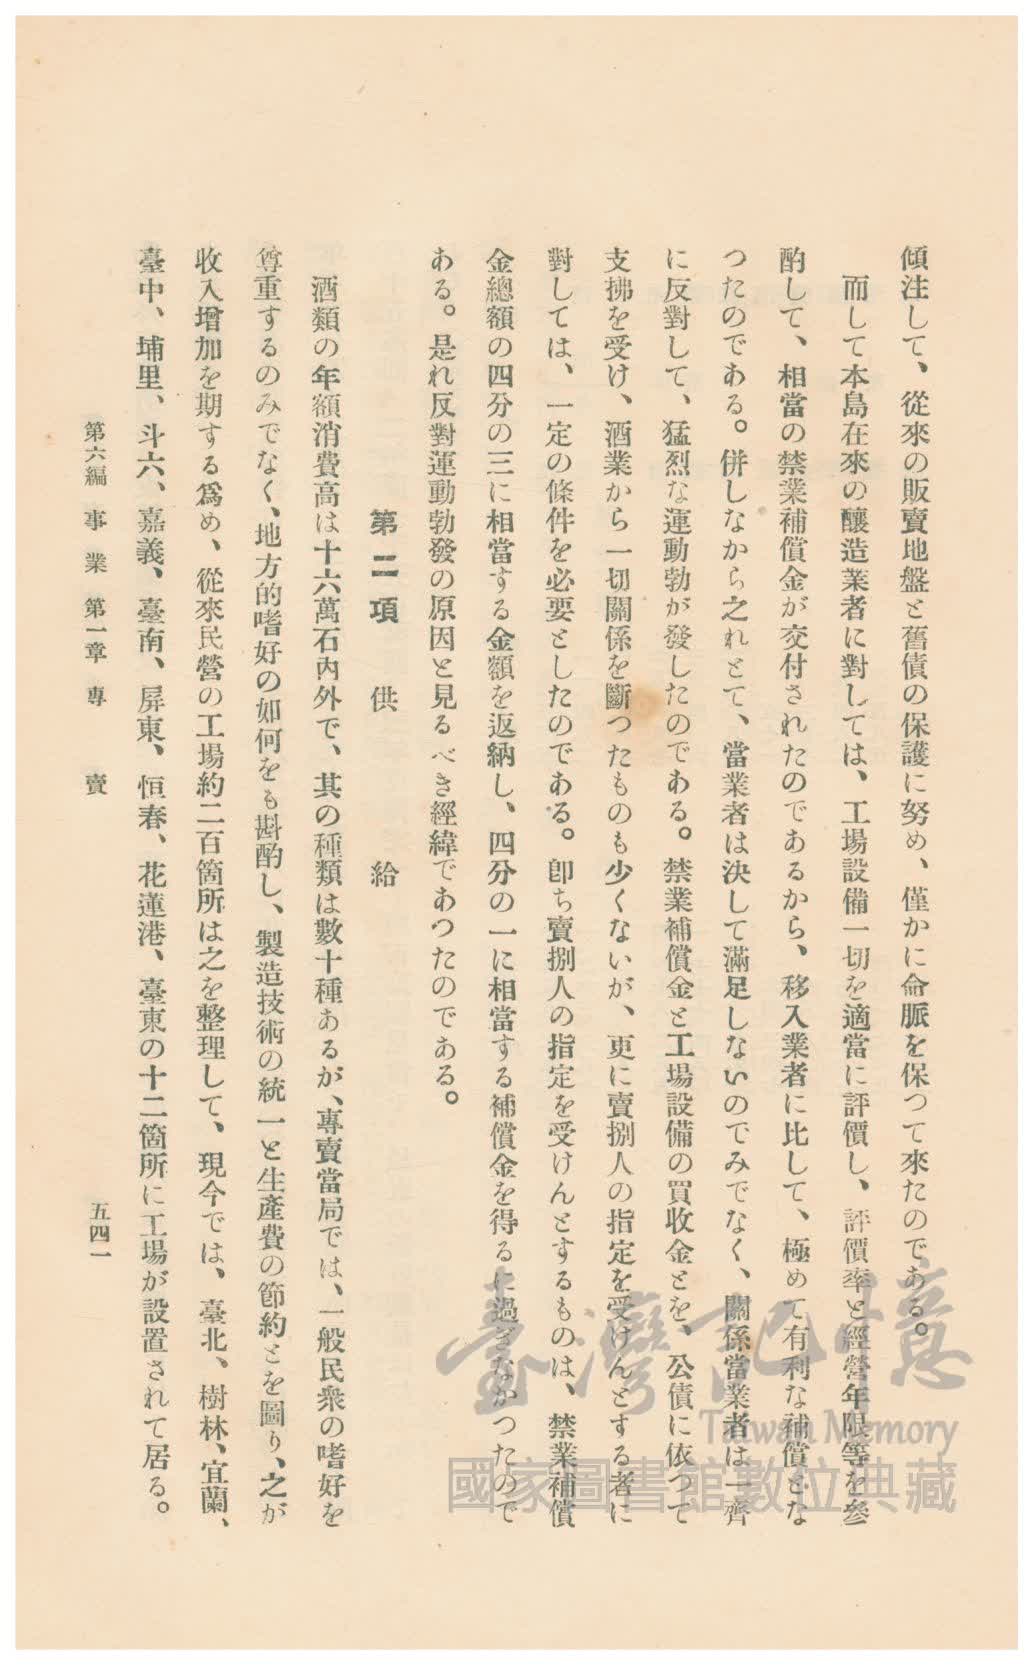 傾注して、從來の販賣地盤と舊債の保護に努め、僅かに命脈を保つて來たのである。
而して本島在來の釀造業者に對しては、工場設備一切を適當に評價し、評價率と經營年限等を參
酌して、相當の禁業補償金が交付されたのであるから、移入業者に比して、極めて有利な補償とな
つたのである。併しなから之れとて、當業者は決して滿足しないのでみでなく、關係當業者は一齊
に反對して、猛烈な運動勃が發したのである。禁業補償金と工場設備の買收金とを、公債に依つて
支拂を受け、酒業から一切關係を斷つたものも少くないが、更に賣捌人の指定を受けんとする者に
對しては、一定の條件を必要としたのである。卽ち賣捌人の指定を受けんとするものは、禁業補償
金總額の四分の三に相當する金額を返納し、四分の一に相當する補償金を得るに過ぎなかつたので
ある。是れ反對運動勃發の原因と見るべき經緯であつたのである。
第二項　供　給
酒類の年額消費高は十六萬石內外で、其の種類は數十種あるが、專賣當局では、一般民衆の嗜好を
尊重するのみでなく、地方的嗜好の如何をも斟酌し、製造技術の統一と生產費の節約とを圖り、之が
收入增加を期する爲め、從來民營の工場約二百箇所は之を整理して、現今では、臺北、樹林、宜蘭、
臺中、埔里、斗六、嘉義、臺南、屏東、恒春、花蓮港、臺東の十二箇所に工場が設置されて居る。
第六編　事業　第一章　專　賣
五四一
臺灣記憶
Taiwan Memory
國家圖書館數位典藏